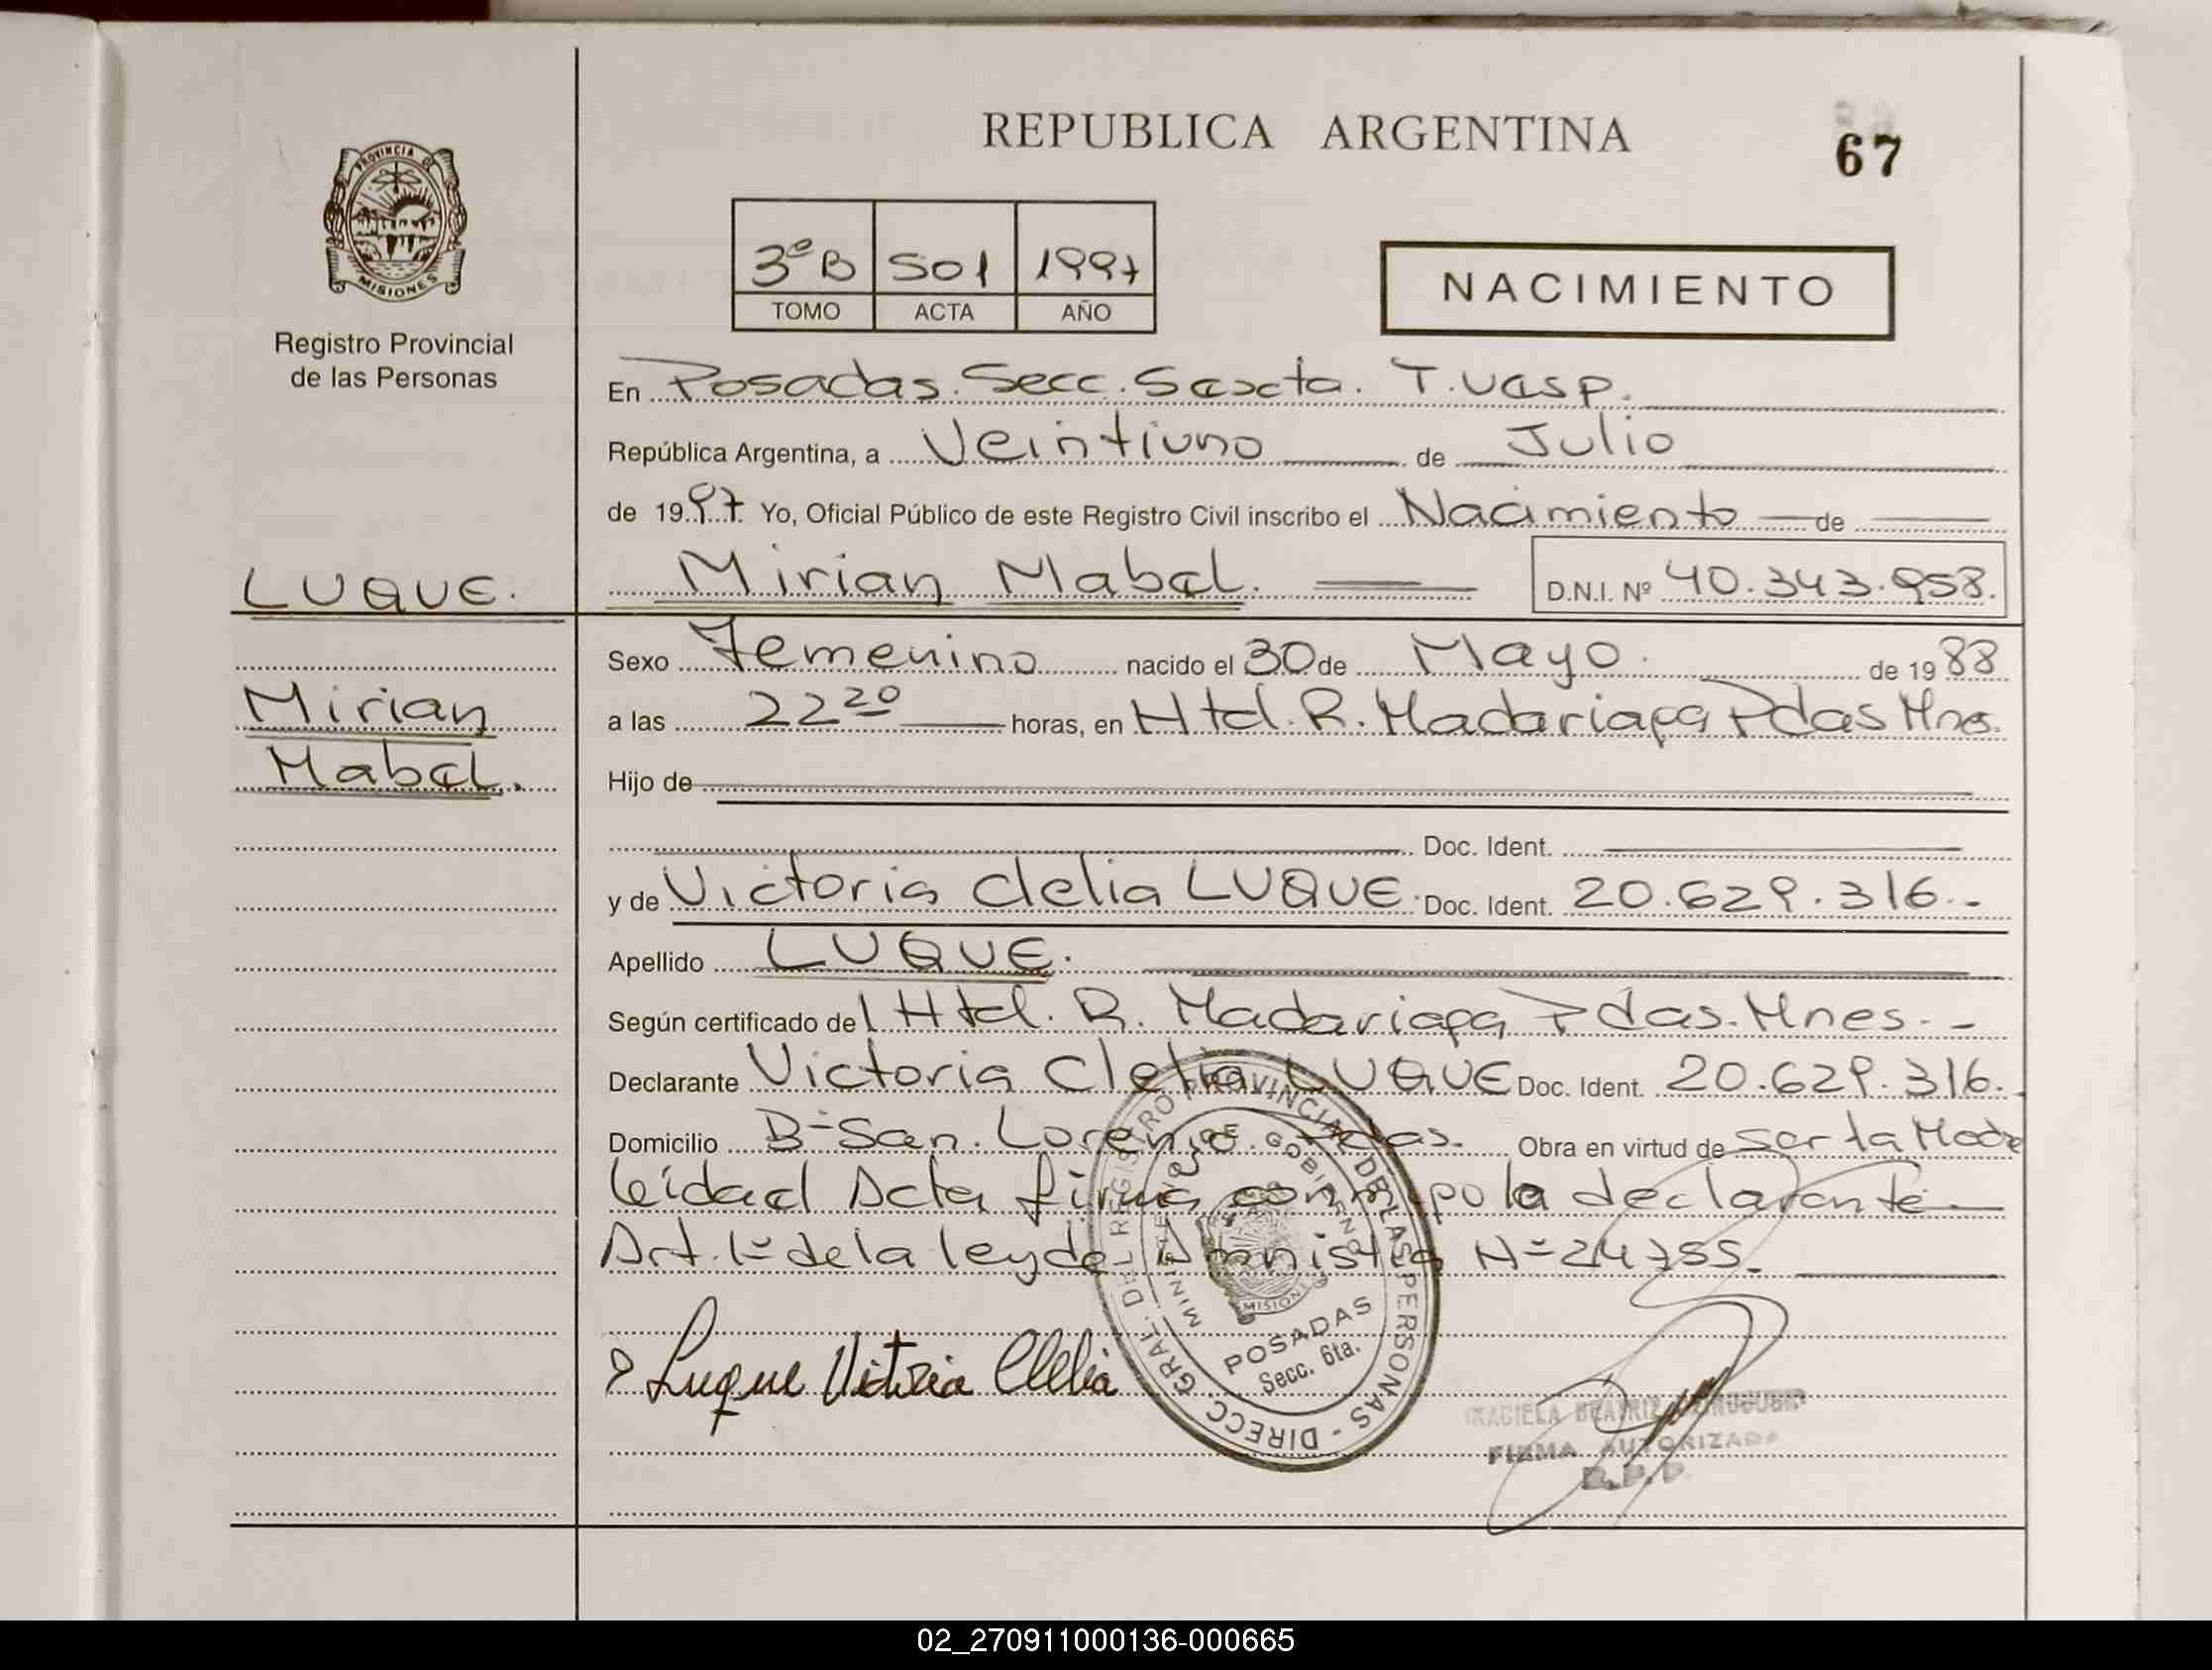 REPUBLICA ARGENTINA
67
PROVINCIA DE
MISIONES
Registro Provincial
de las Personas
3º B 501 1997
TOMO ACTA AÑO
NACIMIENTO
En Posadas. Secc. Sexta. T. Vesp.
República Argentina, a Veintiuno de Julio
de 1997 Yo, Oficial Público de este Registro Civil inscribo el Nacimiento de
LUQUE. Mirian Mabel. D.N.I. Nº 40.343.958.
Sexo Femenino nacido el 30 de Mayo. de 1988
Mirian a las 22 20 horas, en Htal. R. Madariaga Pdas Mnes.
Mabel. Hijo de
Doc. Ident.
y de Victoria Clelia LUQUE Doc. Ident. 20.629.316.-
Apellido LUQUE.
Según certificado del Htal. R. Madariaga Pdas. Mnes.-
Declarante Victoria Clelia LUQUE Doc. Ident. 20.629.316.
Domicilio Bº San. Lorenzo. Pdas. Obra en virtud de ser la Madre
leídad Acta firma conmigo la declarante
Art. 1º de la ley de Amnistia Nº 24755.
Luque Vitoria Clelia
DIRECC. GRAL. DEL REGISTRO PROVINCIAL DE LAS PERSONAS -
MINISTERIO DE GOBIERNO
MISIONES
POSADAS
Secc. 6ta.
GRACIELA BEATRIZ
FIRMA AUTORIZADA
02_270911000136-000665